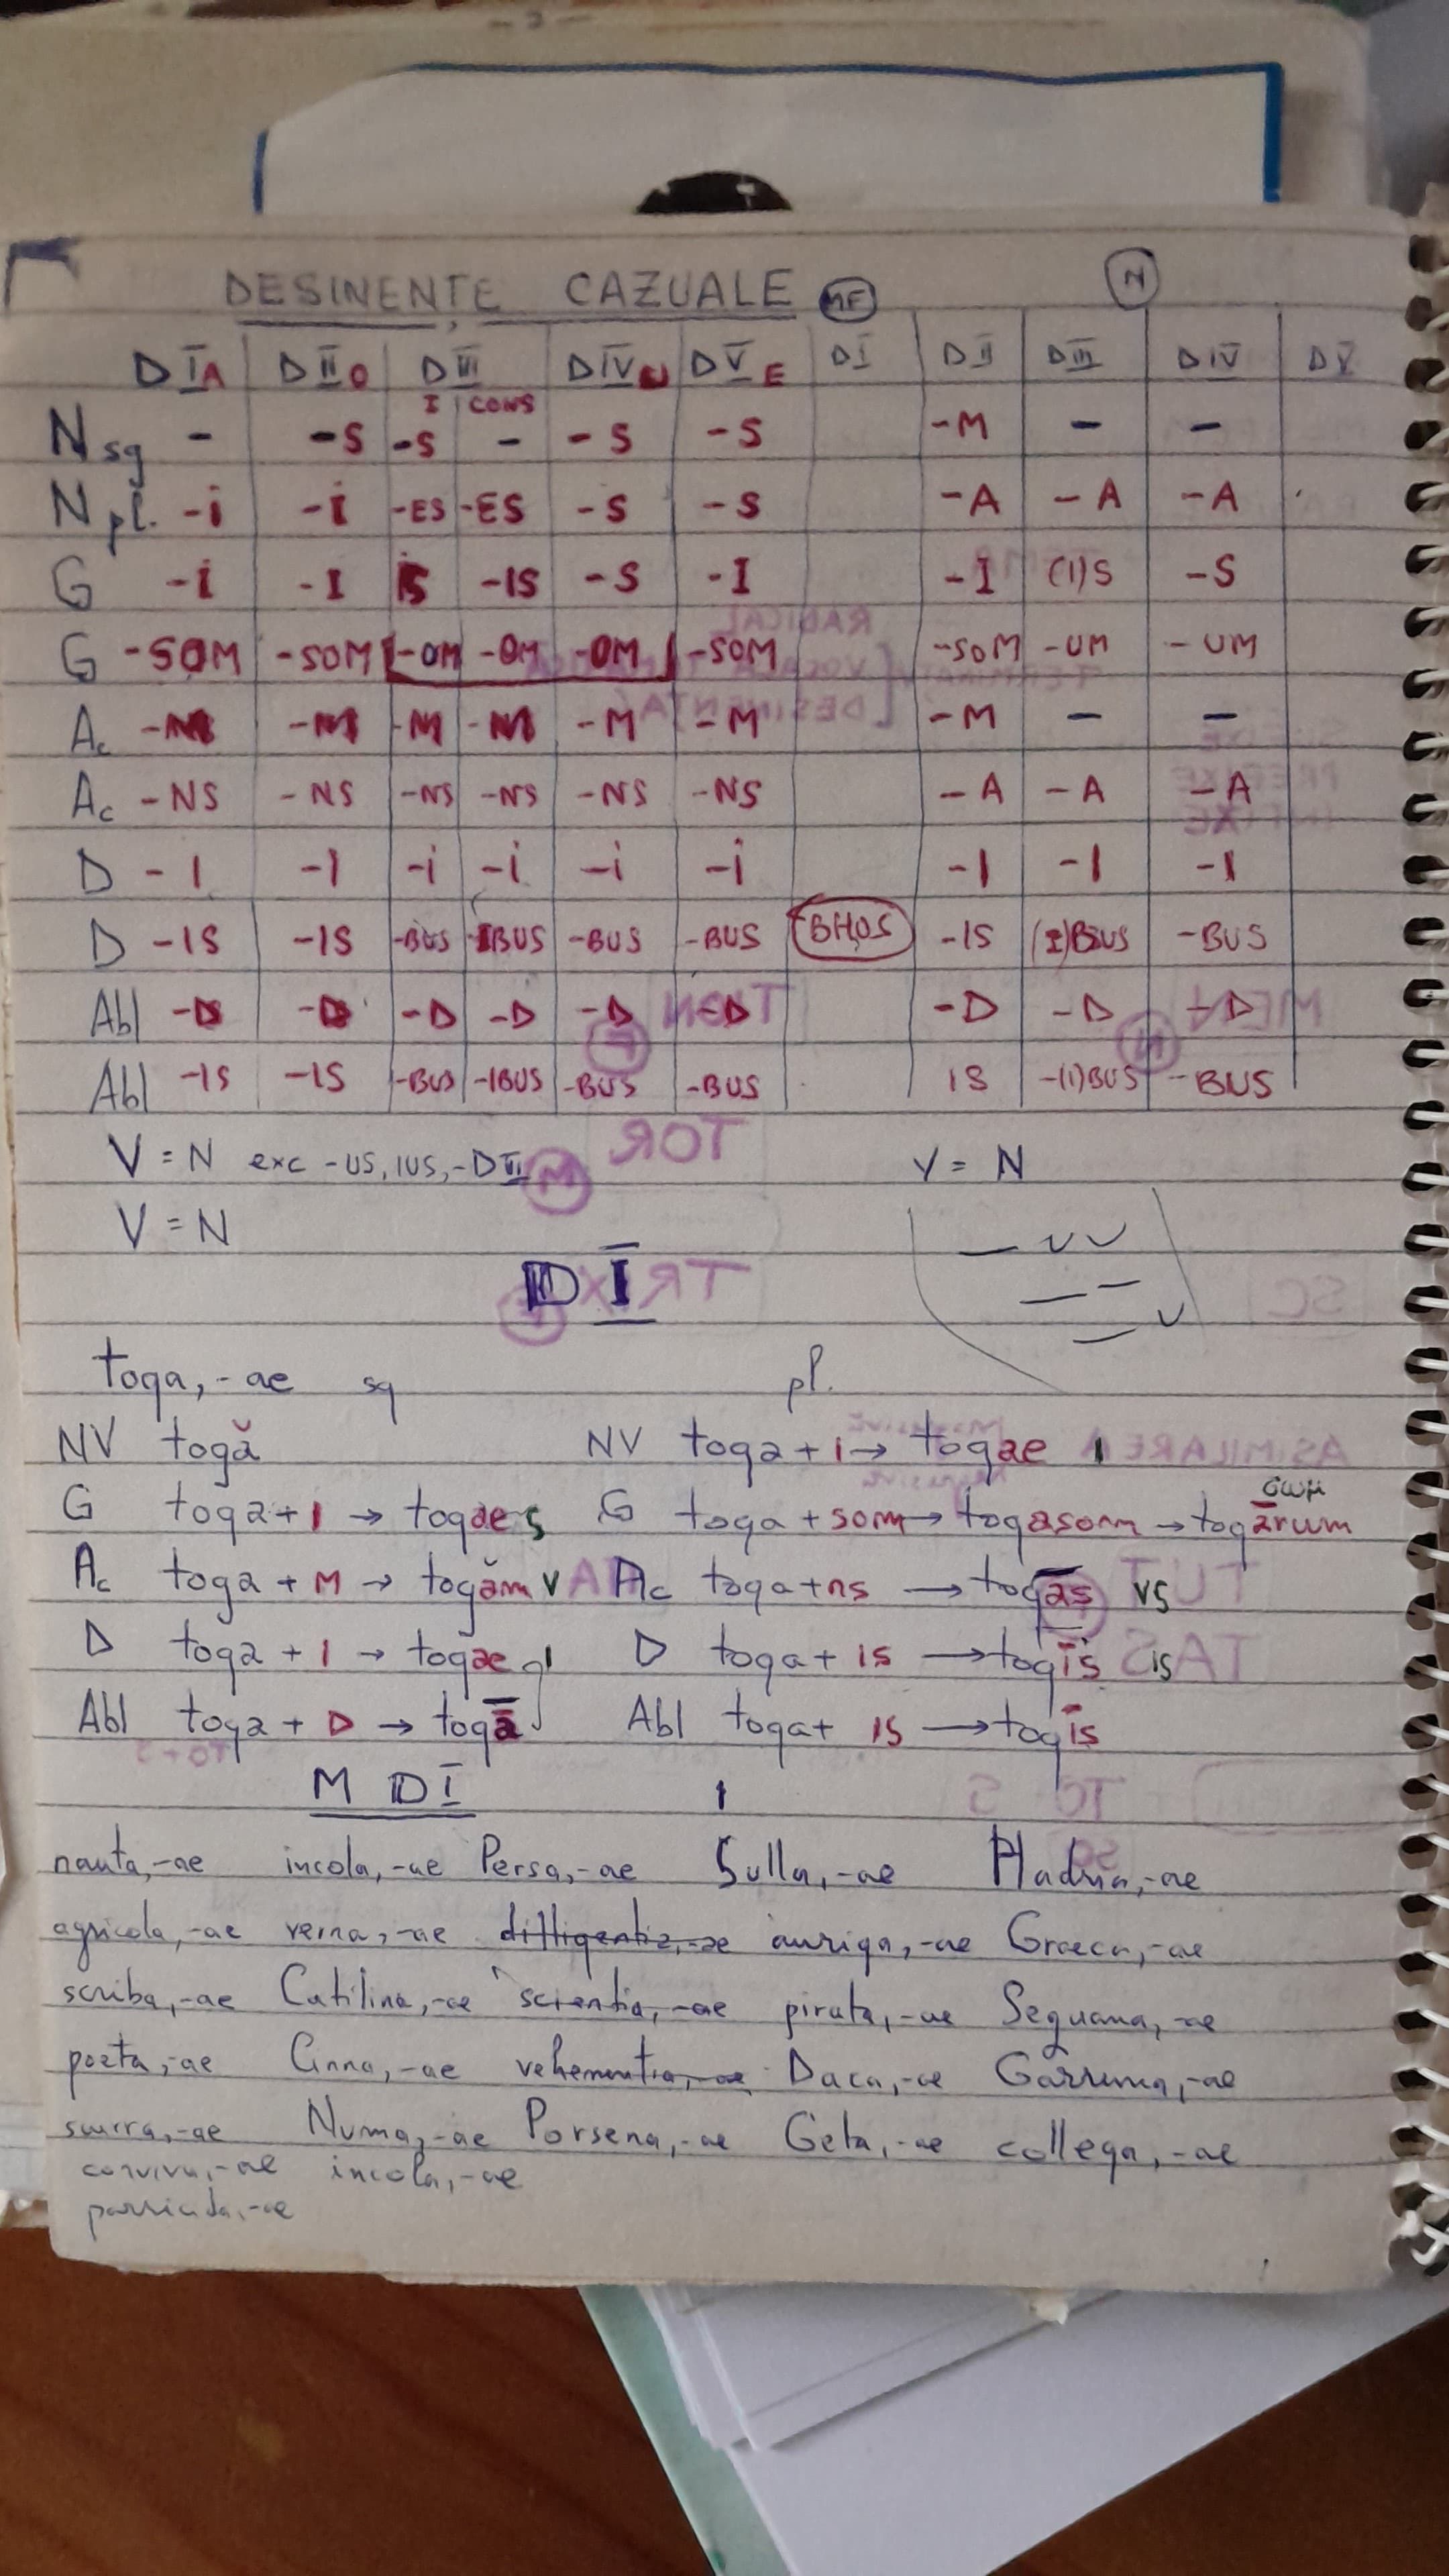 DESINENȚE CAZUALE MF N
D I A D II O D III D IV U D V E D I D II D III D IV D V
I CONS
N sg - -S -S - -S -S -M - -
N pl. -i -I -ES -ES -S -S -A -A -A
G -i -I IS -IS -S -I -I (I)S -S
G -SOM -SOM -OM -OM -OM -SOM -SOM -UM -UM
Ac -M -M -M -M -M -M -M - -
Ac -NS -NS -NS -NS -NS -NS -A -A -A
D -I -I -i -i -i -i -I -I -I
D -IS -IS -BUS -IBUS -BUS -BUS BHOS -IS (I)BUS -BUS
Abl -D -D -D -D -D -D -D -D -D
Abl -IS -IS -BUS -IBUS -BUS -BUS IS -(I)BUS -BUS
V = N exc -US, IUS, -D II V = N
V = N
D I
toga, -ae sg pl.
NV togă NV toga + i → togae
G toga + I → togae G toga + som → togasom → togārum
Ac toga + M → togăm Ac toga + ns → togās
D toga + I → togae D toga + IS → togīs
Abl toga + D → togā Abl toga + IS → togīs
M D I
nauta, -ae incola, -ae Persa, -ae Sulla, -ae Hadria, -ae
agricola, -ae verna, -ae diligentia, -ae auriga, -ae Graeca, -ae
scriba, -ae Catilina, -ae scientia, -ae pirata, -ae Sequana, -ae
poeta, -ae Cinna, -ae vehementia, -ae Daca, -ae Garumna, -ae
scurra, -ae Numa, -ae Porsena, -ae Geta, -ae collega, -ae
conviva, -ae incola, -ae
parricida, -ae